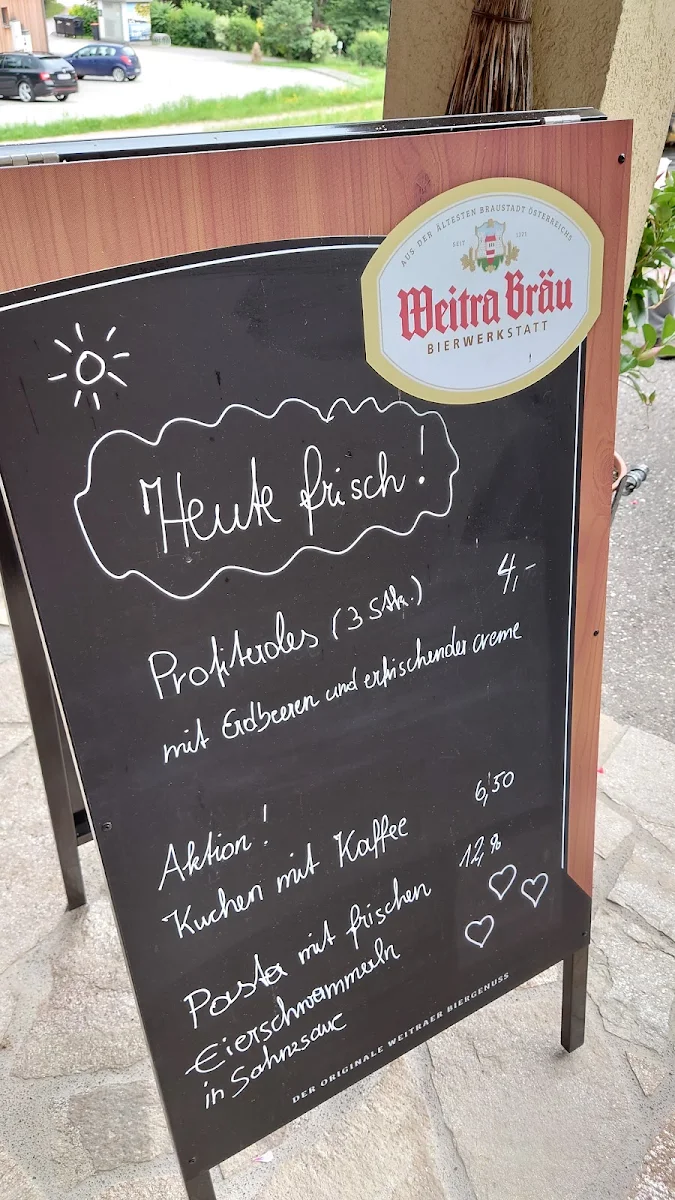 AUS DER ÄLTESTEN BRAUSTADT ÖSTERREICHS
SEIT 1321
Weitra Bräu
BIERWERKSTATT
Heute frisch!
Profiteroles (3 Stk.) 4,-
mit Erdbeeren und erfrischender creme
Aktion! 6,50
Kuchen mit Kaffee
Pasta mit frischen 12,90
Eierschwammerln
in Sahnesauc
DER ORIGINALE WEITRAER BIERGENUSS